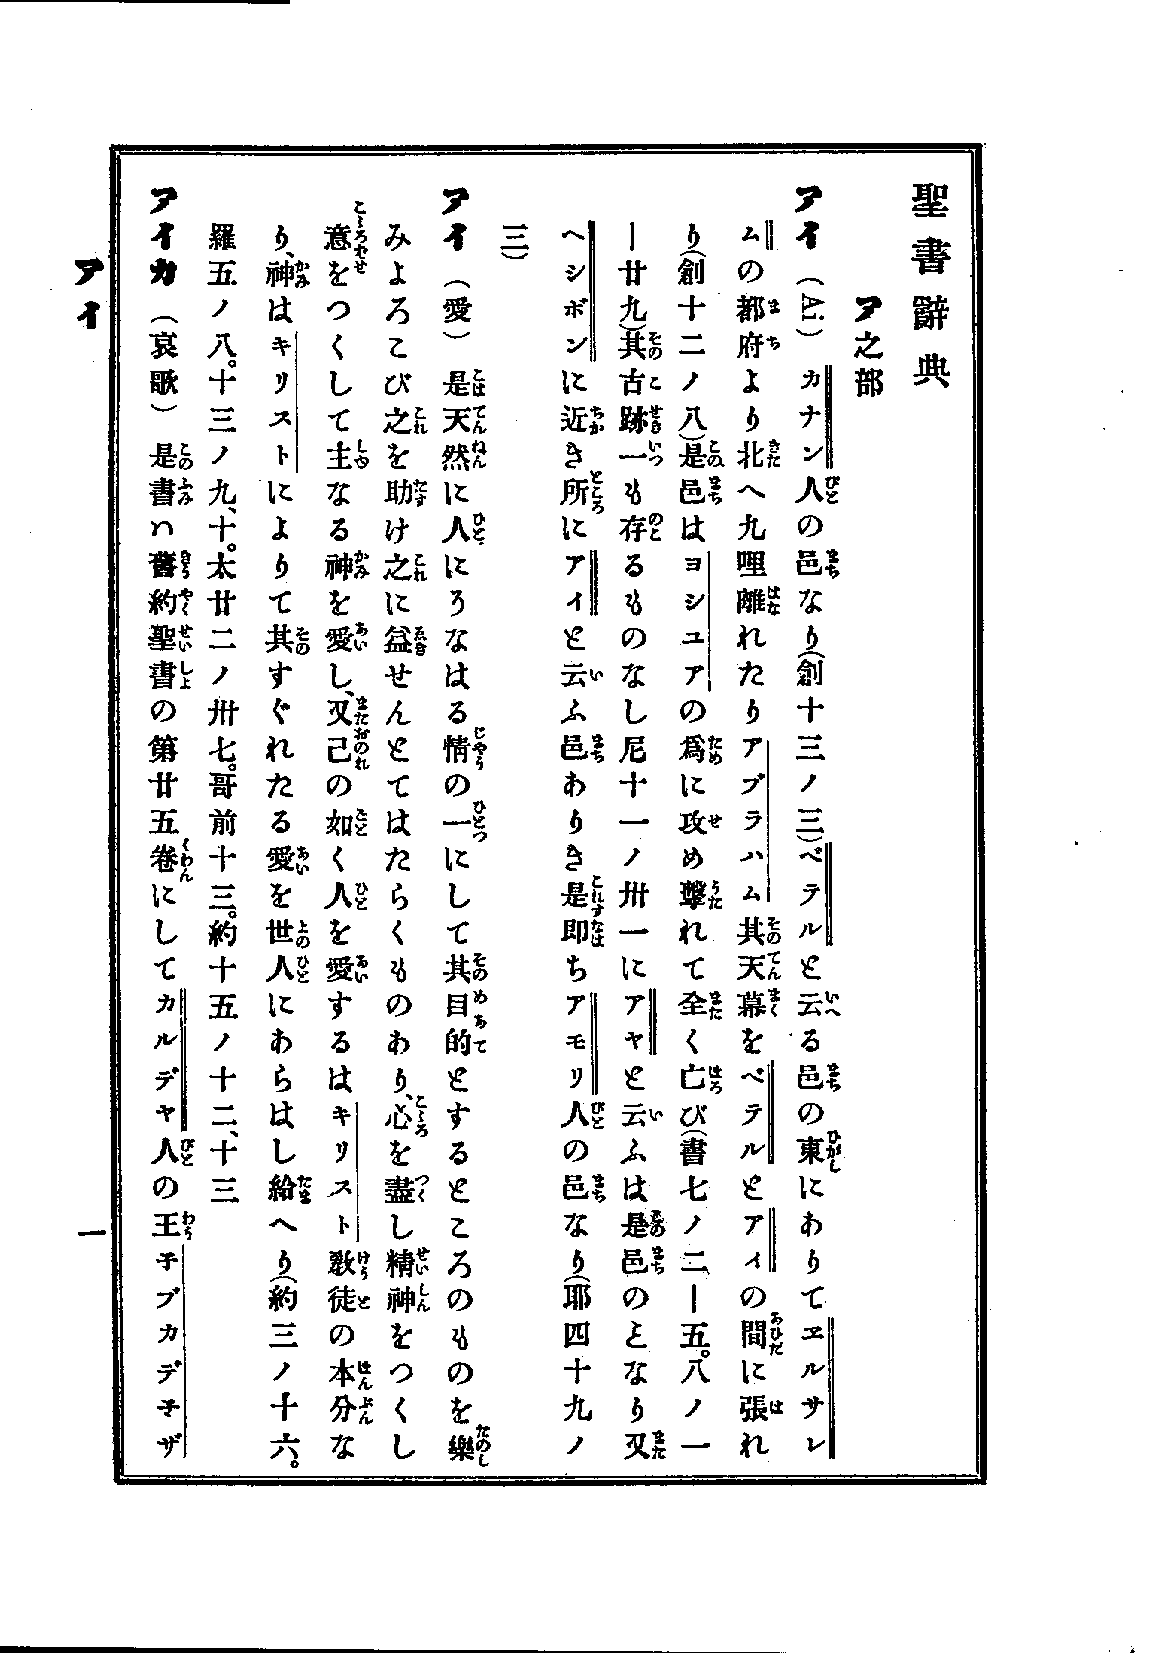 聖書辭典
ア之部
アイ（Ai.）カナン人の邑なり（創十三ノ三）ベテルと云る邑の東にありてヱルサレ
ムの都府より北へ九哩離れたりアブラハム其天幕をベテルとアイの間に張れ
り（創十二ノ八）是邑はヨシユアの爲に攻め擊れて全く亡び（書七ノ二―五。八ノ一
―廿九）其古跡一も存るものなし尼十一ノ卅一にアヤと云ふは是邑のとなり又
ヘシボンに近き所にアイと云ふ邑ありき是即ちアモリ人の邑なり（耶四十九ノ
三）
アイ（愛）是天然に人にうなはる情の一にして其目的とするところのものを樂
みよろこび之を助け之に益せんとてはたらくものあり、心を盡し精神をつくし
意をつくして主なる神を愛し、又己の如く人を愛するはキリスト敎徒の本分な
り、神はキリストによりて其すぐれたる愛を世人にあらはし給へり（約三ノ十六。
羅五ノ八。十三ノ九、十。太廿二ノ卅七。哥前十三。約十五ノ十二、十三
アイカ（哀歌）是書ハ舊約聖書の第廿五卷にしてカルデヤ人の王子ブカデ子ザ
アイ
一